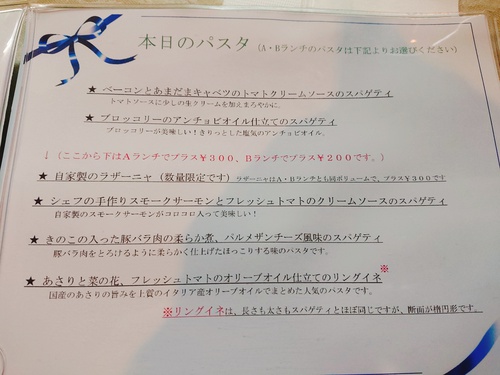 本日のパスタ（A・Bランチのパスタは下記よりお選びください）
★ ベーコンとあまだまキャベツのトマトクリームソースのスパゲティ
トマトソースに少しの生クリームを加えまろやかに。
★ ブロッコリーのアンチョビオイル仕立てのスパゲティ
ブロッコリーが美味しい！きりっとした塩気のアンチョビオイル。
↓（ここから下はAランチでプラス￥３００、Bランチでプラス￥２００です。）
★ 自家製のラザーニャ（数量限定です）ラザーニャはA・Bランチとも同ボリュームで、プラス￥３００です
★ シェフの手作りスモークサーモンとフレッシュトマトのクリームソースのスパゲティ
自家製のスモークサーモンがコロコロ入って美味しい！
★ きのこの入った豚バラ肉の柔らか煮、パルメザンチーズ風味のスパゲティ
豚バラ肉をとろけるように柔らかく仕上げたほっこりする味のパスタです。
★ あさりと菜の花、フレッシュトマトのオリーブオイル仕立てのリングイネ※
国産のあさりの旨みを上質のイタリア産オリーブオイルでまとめた人気のパスタです。
※リングイネは、長さも太さもスパゲティとほぼ同じですが、断面が楕円形です。